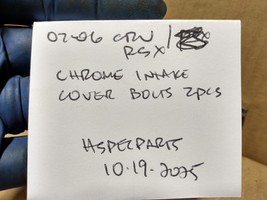 02-06 CRV/
RSX
CHROME INTAKE
COVER BOLTS 2PCS
HSPECPARTS
10-19-2025